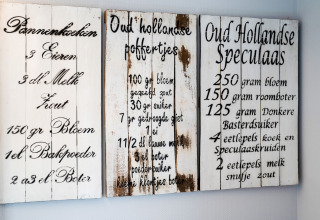 Pannenkoeken
3 Eieren
3 dl Melk
Zout
150 gr Bloem
1 el Bakpoeder
2 a 3 el Boter
Oud hollandse
poffertjes
100 gr bloem
gezeefd zout
30 gr suiker
7 gr gedroogde gist
1 ei
1 1/2 dl lauwe melk
3 el boter
poedersuiker
kleine klontjes boter
Oud Hollandse
Speculaas
250 gram bloem
150 gram roomboter
125 gram Donkere
Basterdsuiker
4 eetlepels koek en
Speculaaskruiden
2 eetlepels melk
snufje zout